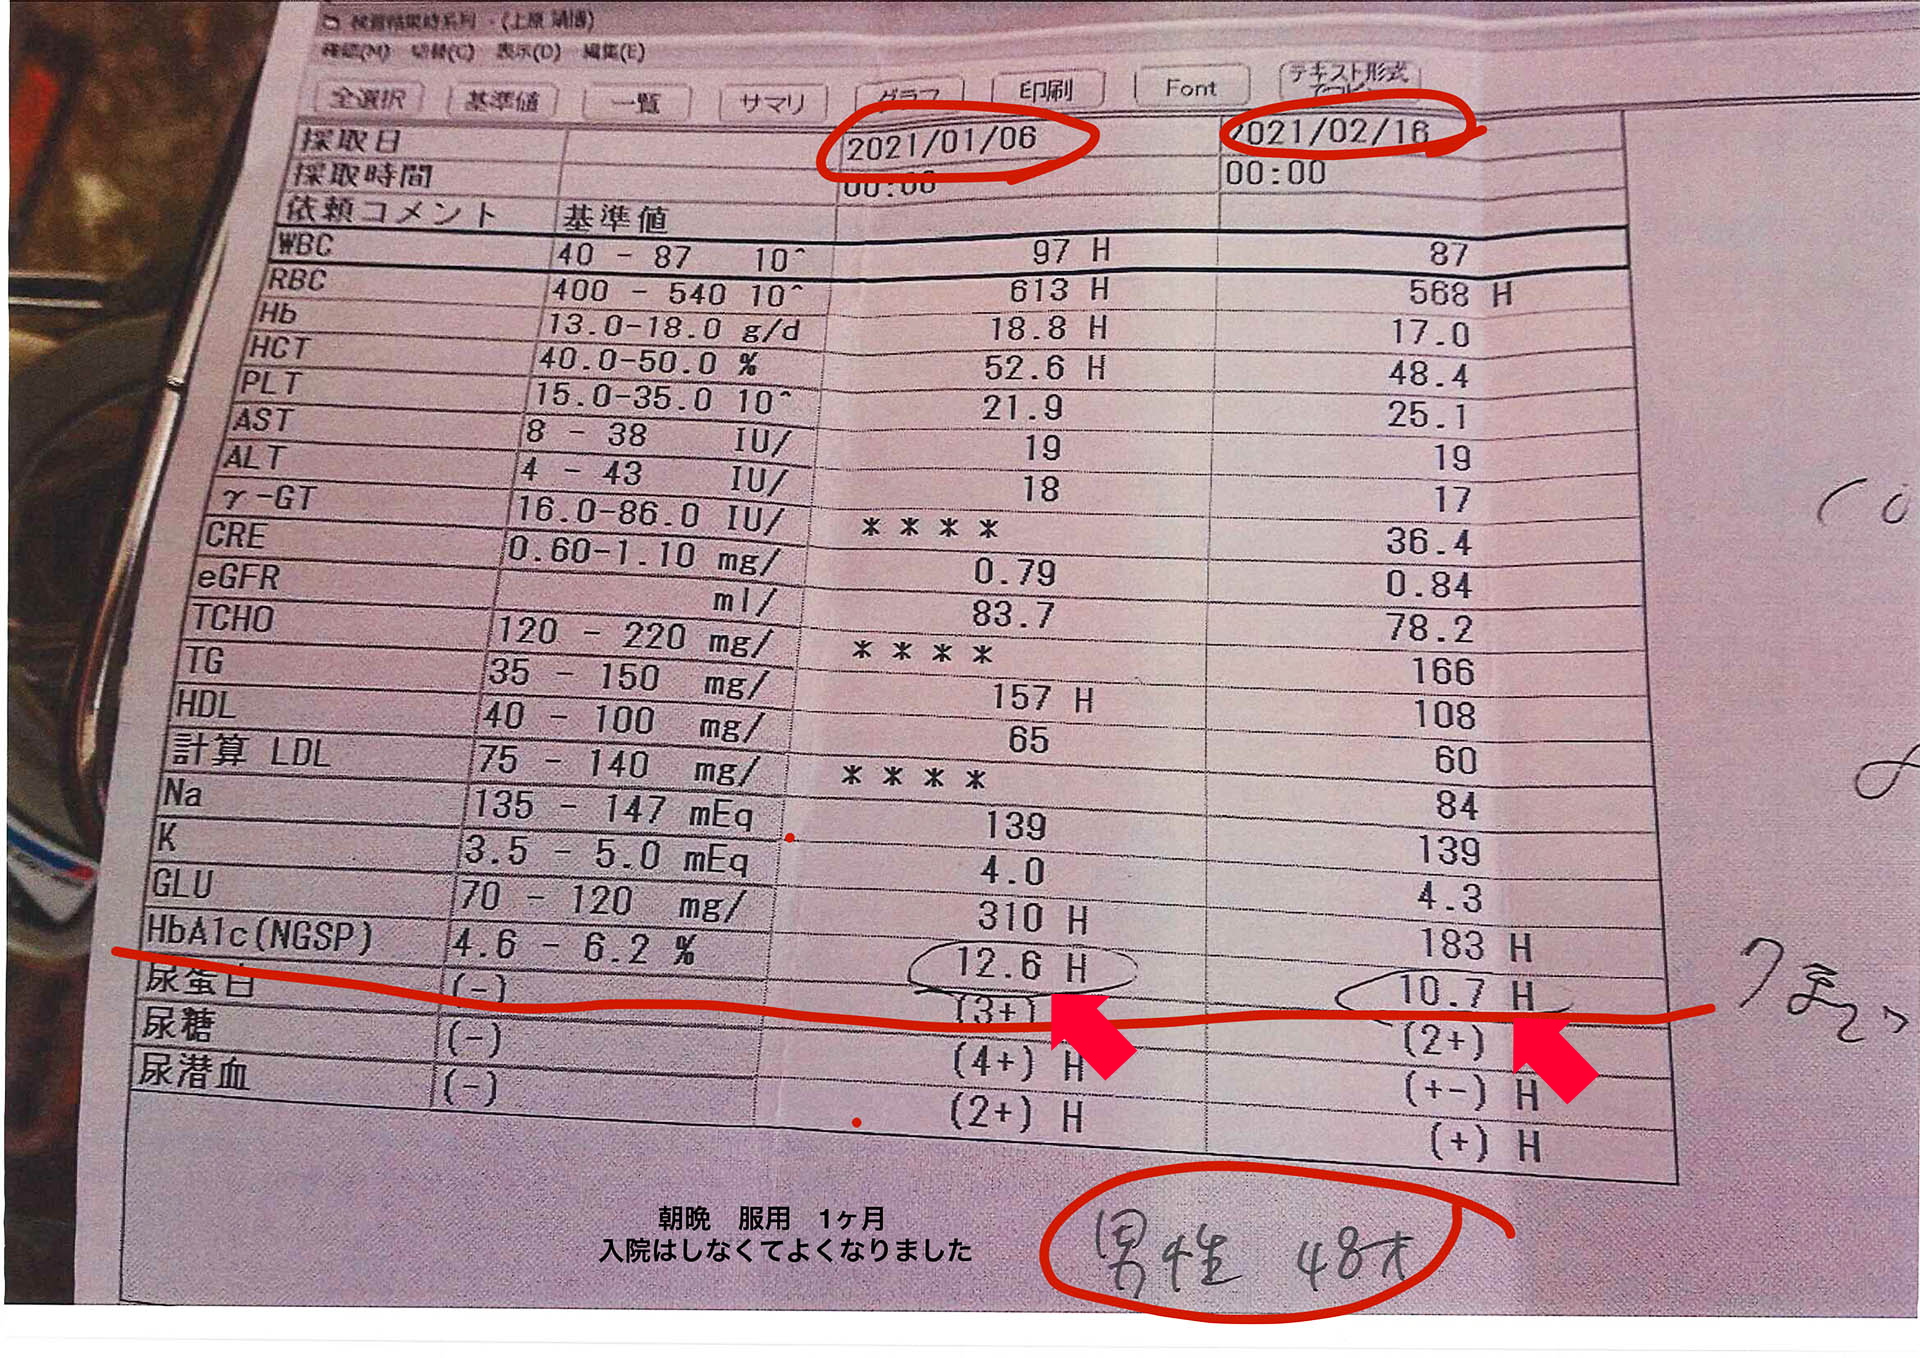 検査結果時系列 - (上原 靖博)
確認(M) 切替(C) 表示(D) 編集(E)
全選択 基準値 一覧 サマリ グラフ 印刷 Font テキスト形式でコピー
採取日 2021/01/06 2021/02/16
採取時間 00:00 00:00
依頼コメント 基準値
WBC 40 - 87 10^ 97 H 87
RBC 400 - 540 10^ 613 H 568 H
Hb 13.0-18.0 g/d 18.8 H 17.0
HCT 40.0-50.0 % 52.6 H 48.4
PLT 15.0-35.0 10^ 21.9 25.1
AST 8 - 38 IU/ 19 19
ALT 4 - 43 IU/ 18 17
γ-GT 16.0-86.0 IU/ **** 36.4
CRE 0.60-1.10 mg/ 0.79 0.84
eGFR ml/ 83.7 78.2
TCHO 120 - 220 mg/ **** 166
TG 35 - 150 mg/ 157 H 108
HDL 40 - 100 mg/ 65 60
計算 LDL 75 - 140 mg/ **** 84
Na 135 - 147 mEq 139 139
K 3.5 - 5.0 mEq 4.0 4.3
GLU 70 - 120 mg/ 310 H 183 H
HbA1c(NGSP) 4.6 - 6.2 % 12.6 H 10.7 H
尿蛋白 (-) (3+) (2+)
尿糖 (-) (4+) H (+-) H
尿潜血 (-) (2+) H (+) H
朝晩 服用 1ヶ月
入院はしなくてよくなりました
男性 48才